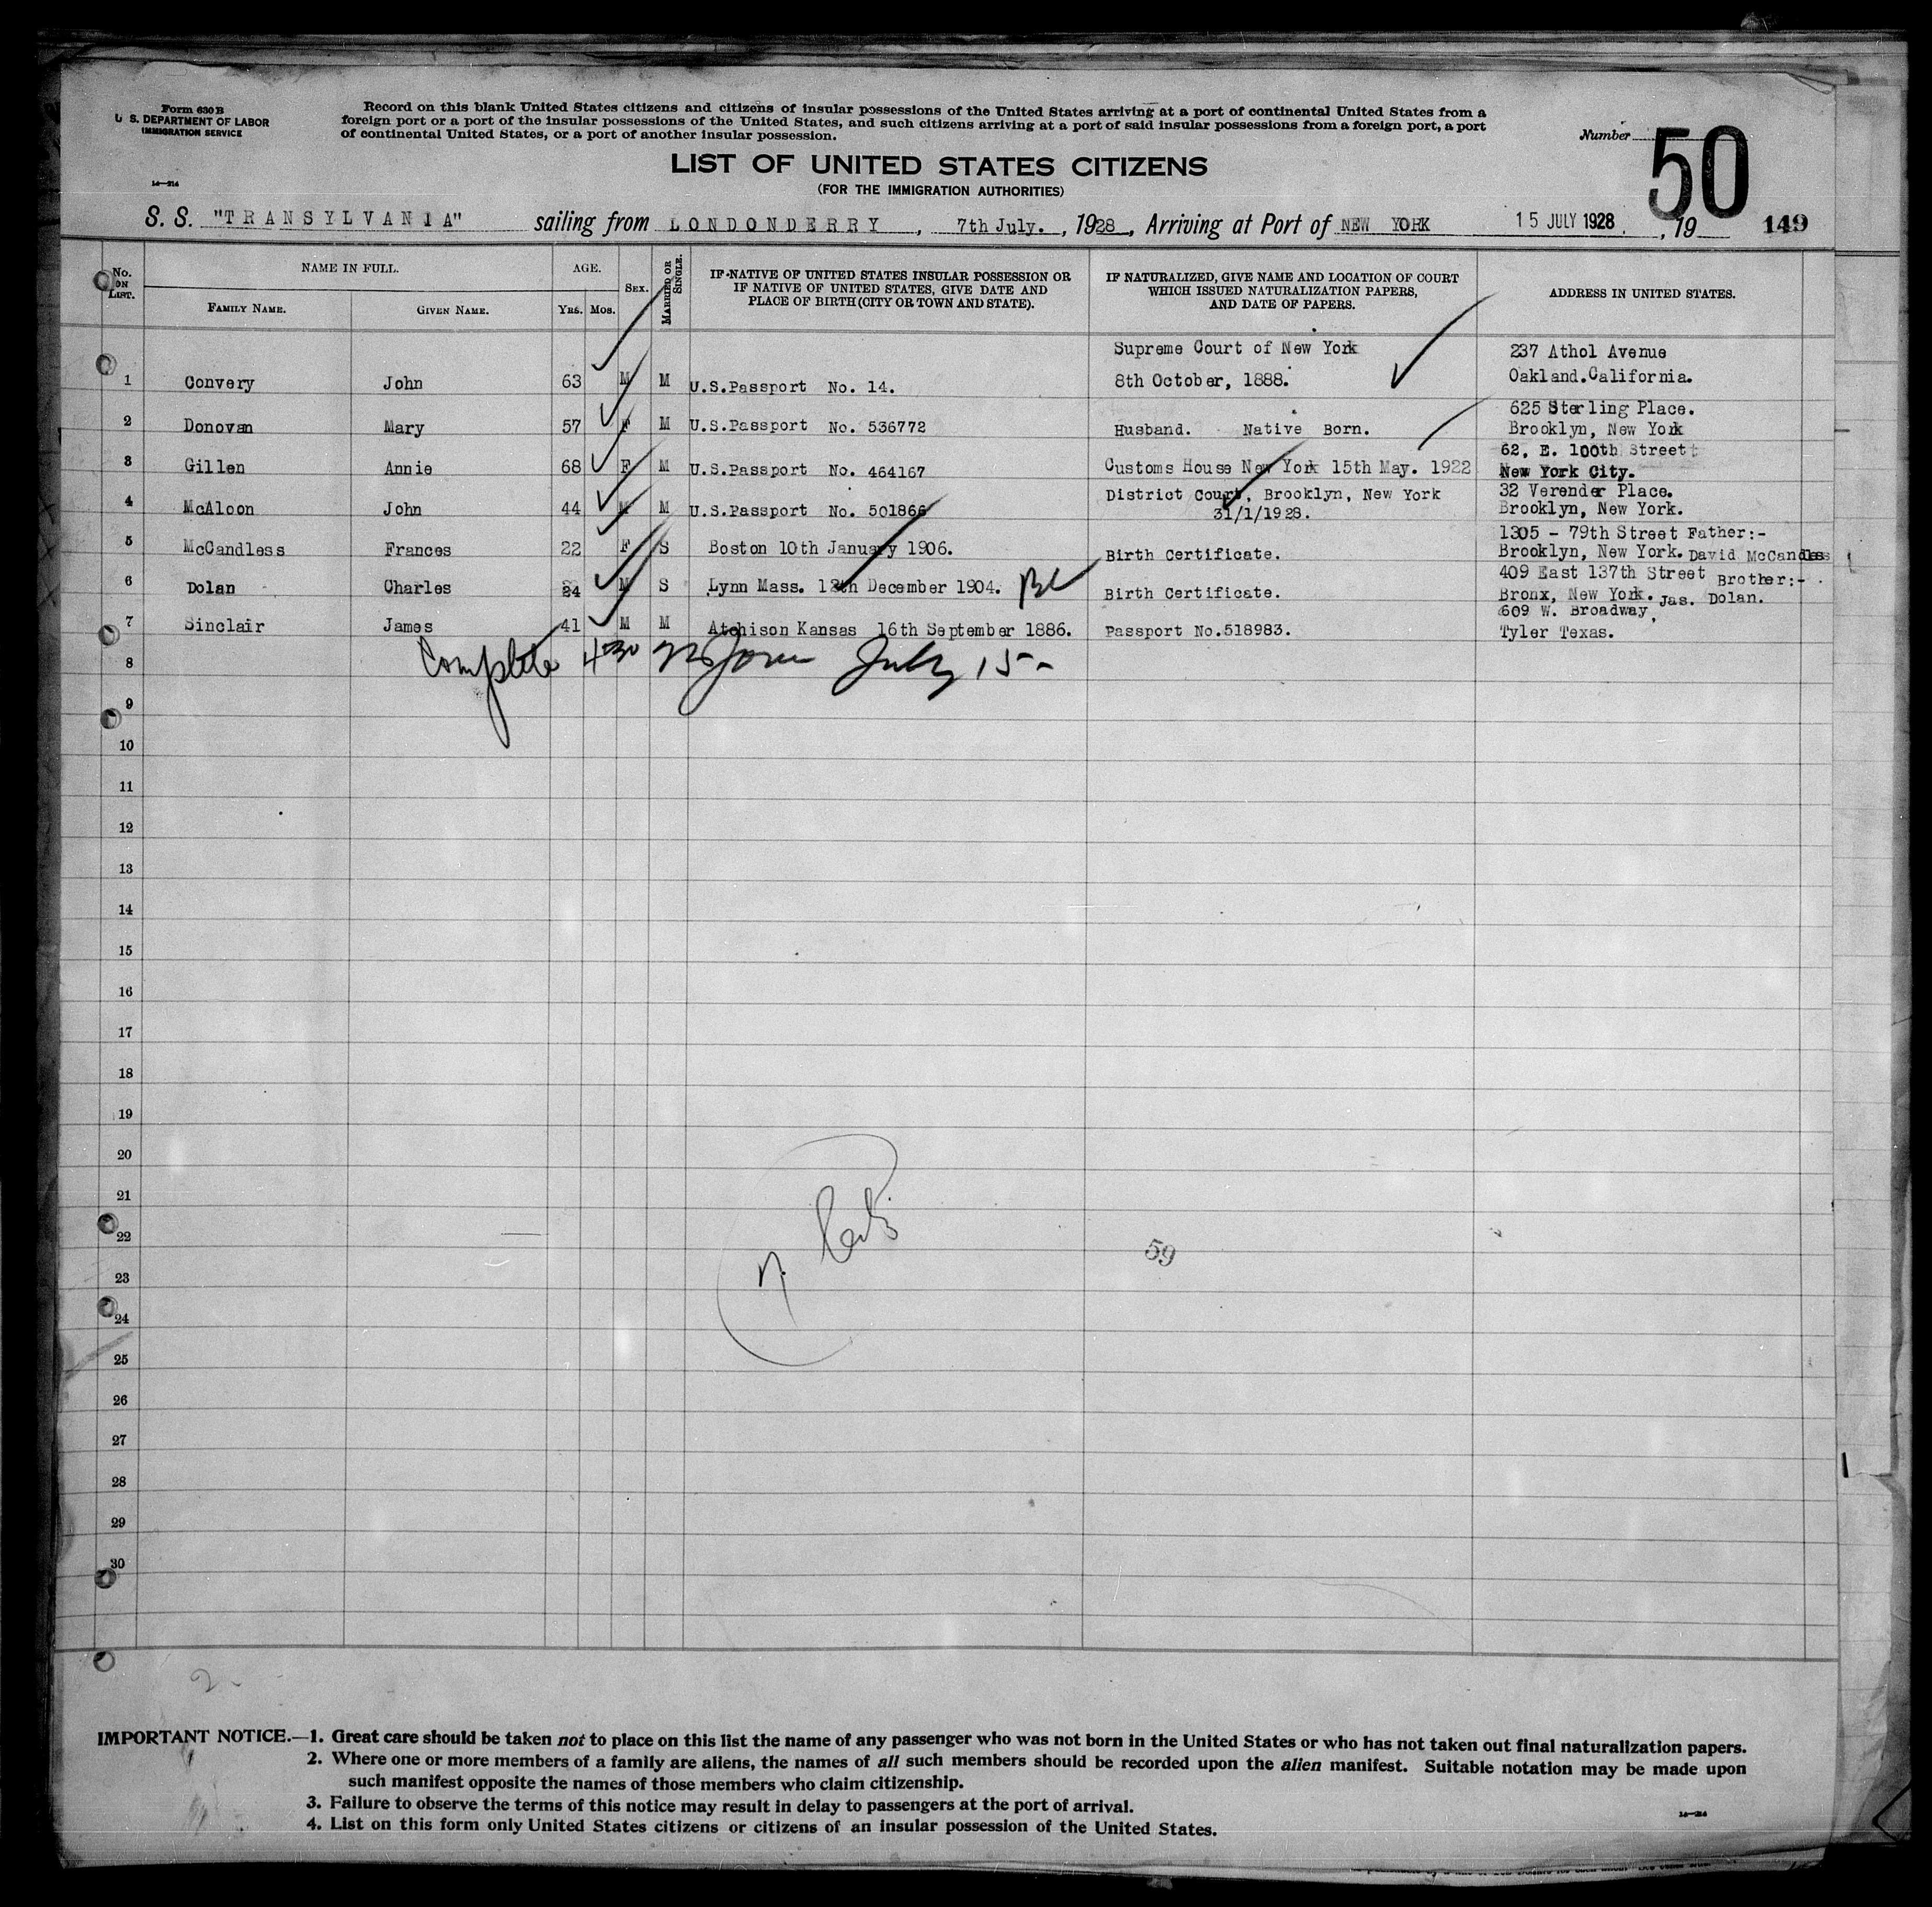 Form 630 B
U. S. DEPARTMENT OF LABOR
IMMIGRATION SERVICE
14—214
Record on this blank United States citizens and citizens of insular possessions of the United States arriving at a port of continental United States from a
foreign port or a port of the insular possessions of the United States, and such citizens arriving at a port of said insular possessions from a foreign port, a port
of continental United States, or a port of another insular possession.
Number 50
LIST OF UNITED STATES CITIZENS
(FOR THE IMMIGRATION AUTHORITIES)
S. S. "TRANSYLVANIA" sailing from LONDONDERRY, 7th July., 1928, Arriving at Port of NEW YORK 15 JULY 1928, 19 149
No. ON LIST. NAME IN FULL. AGE. SEX. MARRIED OR SINGLE. IF NATIVE OF UNITED STATES INSULAR POSSESSION OR IF NATIVE OF UNITED STATES, GIVE DATE AND PLACE OF BIRTH (CITY OR TOWN AND STATE). IF NATURALIZED, GIVE NAME AND LOCATION OF COURT WHICH ISSUED NATURALIZATION PAPERS, AND DATE OF PAPERS. ADDRESS IN UNITED STATES.
FAMILY NAME. GIVEN NAME. YRS. MOS.
Supreme Court of New York 237 Athol Avenue
1 Convery John 63 M M U.S.Passport No. 14. 8th October, 1888. Oakland.California.
625 Sterling Place.
2 Donovan Mary 57 F M U.S.Passport No. 536772 Husband. Native Born. Brooklyn, New York
62, E. 100th Street
3 Gillen Annie 68 F M U.S.Passport No. 464167 Customs House New York 15th May. 1922 New York City.
District Court, Brooklyn, New York 32 Verender Place.
4 McAloon John 44 M M U.S.Passport No. 501866 31/1/1928. Brooklyn, New York.
1305 - 79th Street Father:-
5 McCandless Frances 22 F S Boston 10th January 1906. Birth Certificate. Brooklyn, New York. David McCandless
409 East 137th Street Brother:-
6 Dolan Charles 24 M S Lynn Mass. 12th December 1904. BC Birth Certificate. Bronx, New York. Jas. Dolan.
609 W. Broadway,
7 Sinclair James 41 M M Atchison Kansas 16th September 1886. Passport No.518983. Tyler Texas.
8 Complete 430 July 15-
9
10
11
12
13
14
15
16
17
18
19
20
21
22 59
23
24
25
26
27
28
29
30
IMPORTANT NOTICE.—1. Great care should be taken not to place on this list the name of any passenger who was not born in the United States or who has not taken out final naturalization papers.
2. Where one or more members of a family are aliens, the names of all such members should be recorded upon the alien manifest. Suitable notation may be made upon
such manifest opposite the names of those members who claim citizenship.
3. Failure to observe the terms of this notice may result in delay to passengers at the port of arrival.
4. List on this form only United States citizens or citizens of an insular possession of the United States.
14—214